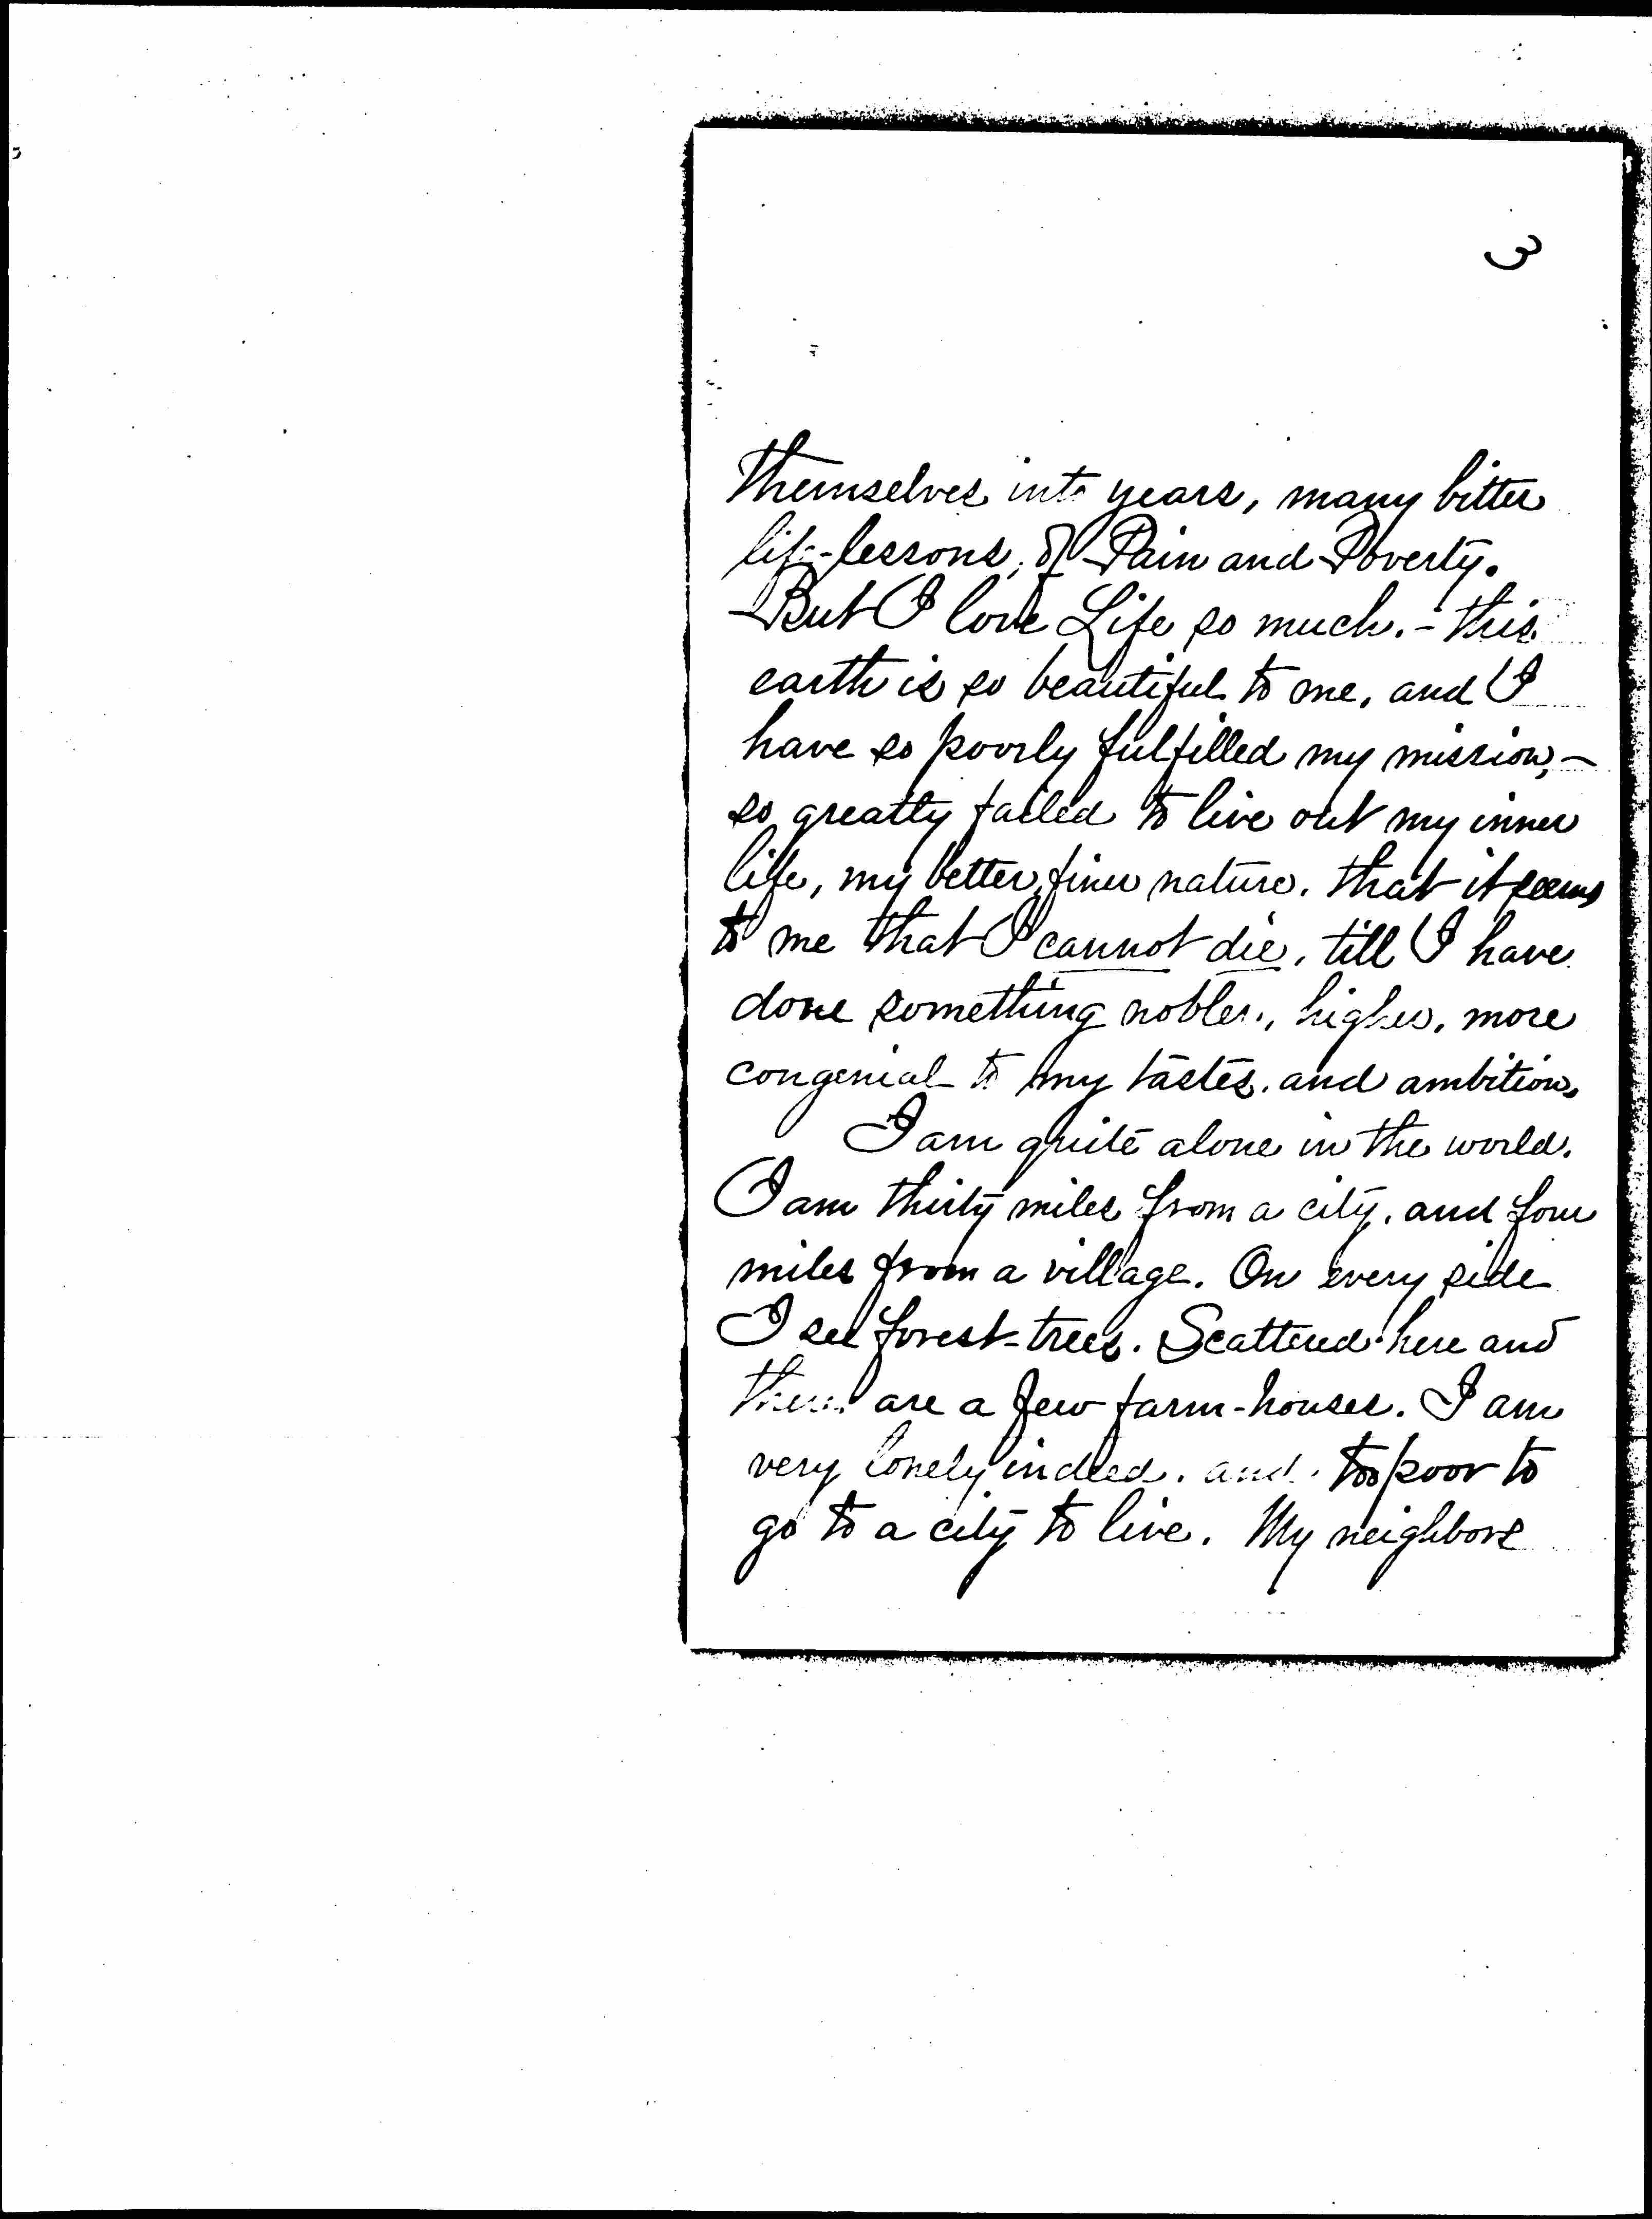 3
themselves into years, many bitter
life-lessons, of Pain and Poverty.
But I love Life so much. - this
earth is so beautiful to me, and I
have so poorly fulfilled my mission, -
so greatly failed to live out my inner
life, my better, finer nature. that it seems
to me that I cannot die, till I have
done something nobler, higher, more
congenial to my tastes. and ambition,
I am quite alone in the world.
I am thirty miles from a city, and four
miles from a village. On every side
I see forest-trees. Scattered here and
there are a few farm-houses. I am
very lonely indeed. and too poor to
go to a city to live. My neighbors